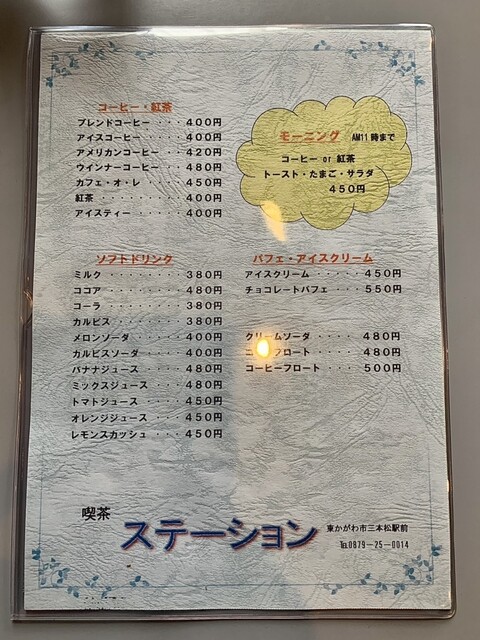 コーヒー・紅茶
ブレンドコーヒー ・・・ 400円
アイスコーヒー ・・・・ 400円
アメリカンコーヒー ・・ 420円
ウインナーコーヒー ・・ 480円
カフェ・オ・レ ・・・・ 450円
紅茶 ・・・・・・・・・ 400円
アイスティー ・・・・・ 400円
モーニング AM11時まで
コーヒー or 紅茶
トースト・たまご・サラダ
450円
ソフトドリンク
ミルク ・・・・・・・・ 380円
ココア ・・・・・・・・ 480円
コーラ ・・・・・・・・ 380円
カルピス ・・・・・・・ 380円
メロンソーダ ・・・・・ 400円
カルピスソーダ ・・・・ 400円
バナナジュース ・・・・ 480円
ミックスジュース ・・・ 480円
トマトジュース ・・・・ 450円
オレンジジュース ・・・ 450円
レモンスカッシュ ・・・ 450円
パフェ・アイスクリーム
アイスクリーム ・・・・・ 450円
チョコレートパフェ ・・・ 550円
クリームソーダ ・・・・・ 480円
フロート ・・・・・ 480円
コーヒーフロート ・・・・ 500円
喫茶 ステーション
東かがわ市三本松駅前
℡0879-25-0014